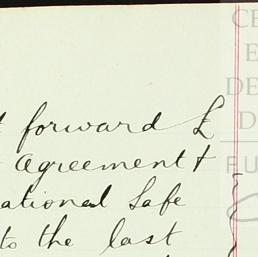 forward £
Agreement +
ational Safe
to the last
CE
E
DE
D
FU